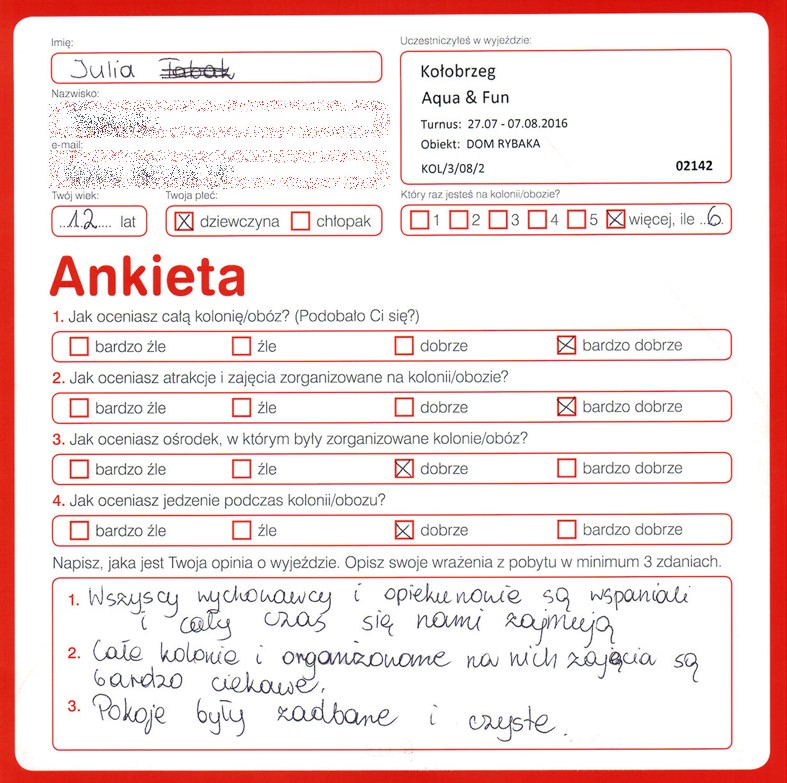 Imię:
Julia
Nazwisko:
e-mail:
Twój wiek:
..12.... lat
Twoja płeć:
dziewczyna chłopak
Uczestniczyłeś w wyjeździe:
Kołobrzeg
Aqua & Fun
Turnus: 27.07 - 07.08.2016
Obiekt: DOM RYBAKA
KOL/3/08/2 02142
Który raz jesteś na kolonii/obozie?
1 2 3 4 5 więcej, ile ..6.
Ankieta
1. Jak oceniasz całą kolonię/obóz? (Podobało Ci się?)
bardzo źle źle dobrze bardzo dobrze
2. Jak oceniasz atrakcje i zajęcia zorganizowane na kolonii/obozie?
bardzo źle źle dobrze bardzo dobrze
3. Jak oceniasz ośrodek, w którym były zorganizowane kolonie/obóz?
bardzo źle źle dobrze bardzo dobrze
4. Jak oceniasz jedzenie podczas kolonii/obozu?
bardzo źle źle dobrze bardzo dobrze
Napisz, jaka jest Twoja opinia o wyjeździe. Opisz swoje wrażenia z pobytu w minimum 3 zdaniach.
1. Wszyscy wychowawcy i opiekunowie są wspaniali
i cały czas się nami zajmują
2. Całe kolonie i organizowane na nich zajęcia są
bardzo ciekawe.
3. Pokoje były zadbane i czyste.